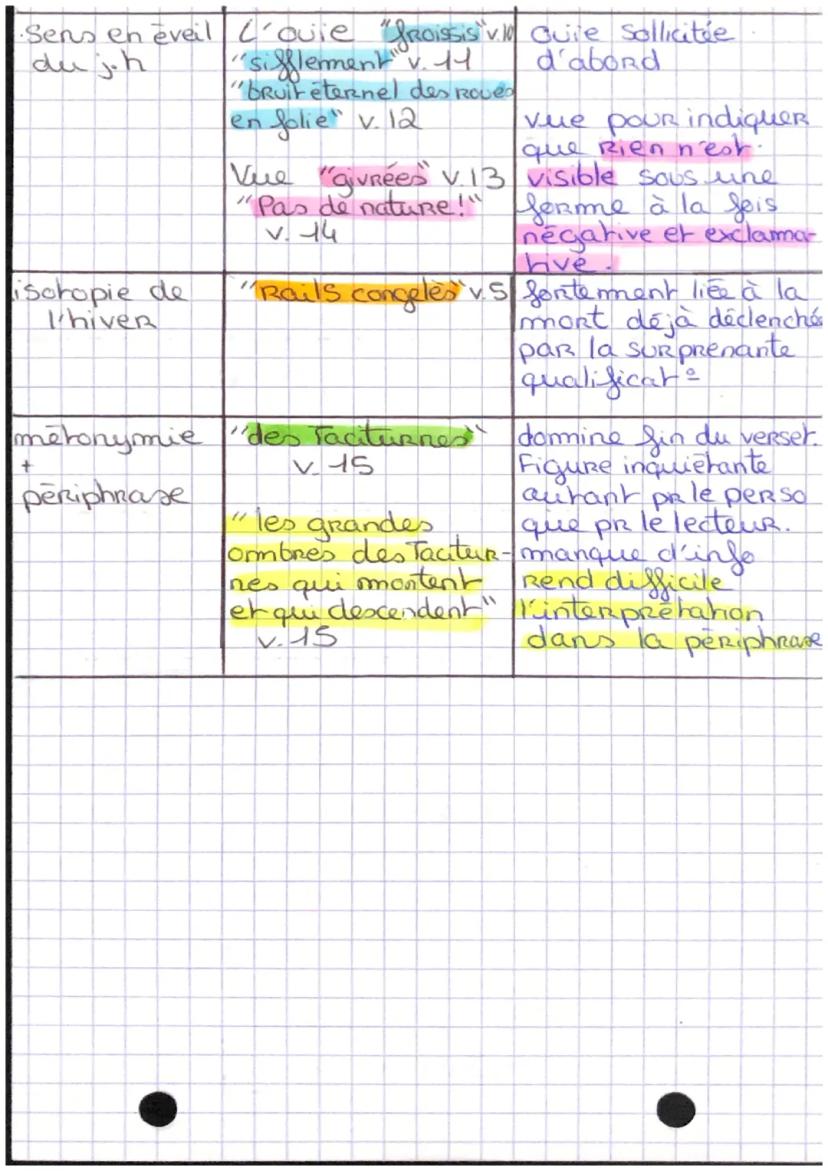 .Sens en éveil
du j.h
L'ouie "froissis" v.10
"sifflement" v. 11
"bruit éternel des roues
en folie" v. 12
Vue "givrées" v.13
"Pas de nature!"
v. 14
ouie sollicitée
d'abord
vue pour indiquer
que rien n'est
visible sous une
forme à la fois
négative et exclama-
tive.
isotopie de
l'hiver
"Rails congelés" v.5
fortement liée à la
mort déjà déclenchée
par la surprenante
qualificat°
métonymie
+
périphrase
"des Taciturnes"
v. 15
"les grandes
ombres des Tacitur-
nes qui montent
et qui descendent"
v. 15
domine fin du verset.
Figure inquiétante
autant pr le perso
que pr le lecteur.
manque d'info
rend difficile
l'interprétation
dans la périphrase